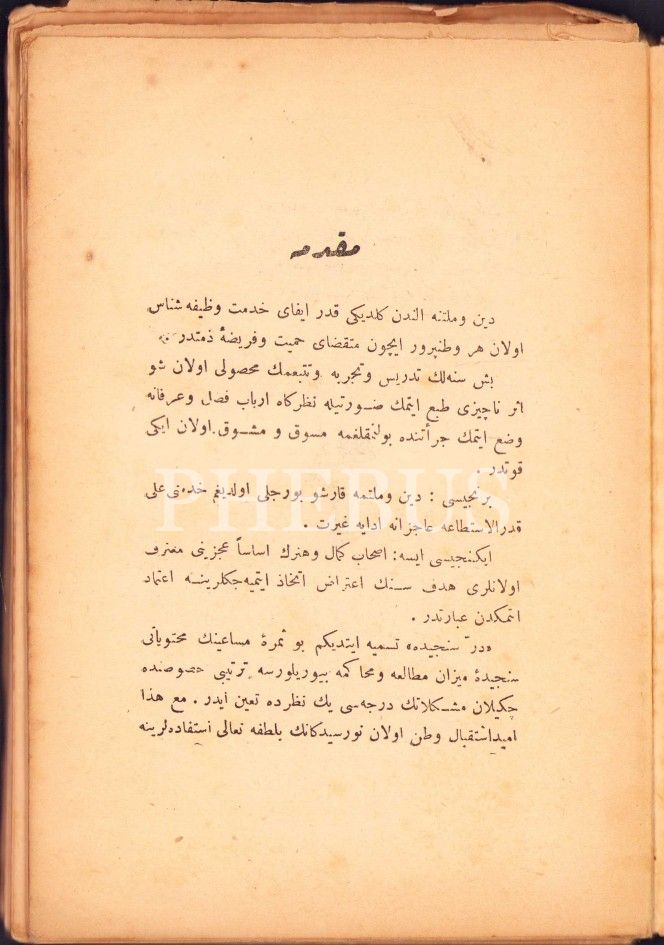 مقدمه
دین و ملتنه الندن كلدیكی قدر ایفای خدمت وظیفه شناس
اولان هر وطنپرور ایچون متقضای حمیت وفریضهٔ ذمتدر
بش سنه‌لك تدریس وتجربه وتتبعمك محصولی اولان شو
اثر ناچیزی طبع ایتمك صورتیله نظركاه ارباب فضل وعرفانه
وضع ایتمك جرأتنده بولنمقلغمه مسوق و مشوق اولان ایكی
قوتدر .
برنجیسی : دین وملتمه قارشو بورجلی اولدیغم خدمتی علی
قدرالاستطاعه عاجزانه ادایه غیرت .
ایكنجیسی ایسه : اصحاب كمال وهنرك اساساً عجزینی معترف
اولانلری هدف سنك اعتراض اتخاذ ایتمیه‌جكلرینه اعتماد
اتمكدن عبارتدر .
«در سنجیده» تسمیه ایتدیكم بو ثمرهٔ مساعینك محتویاتی
سنجیدهٔ میزان مطالعه ومحاكمه بیوریلورسه ترتیبی خصوصنده
چكیلان مشكلاتك درجه‌سی یك نظرده تعین ایدر . مع هذا
امیداستقبال وطن اولان نورسیدكانك بلطفه تعالی استفاده‌لرینه
PHEBUS